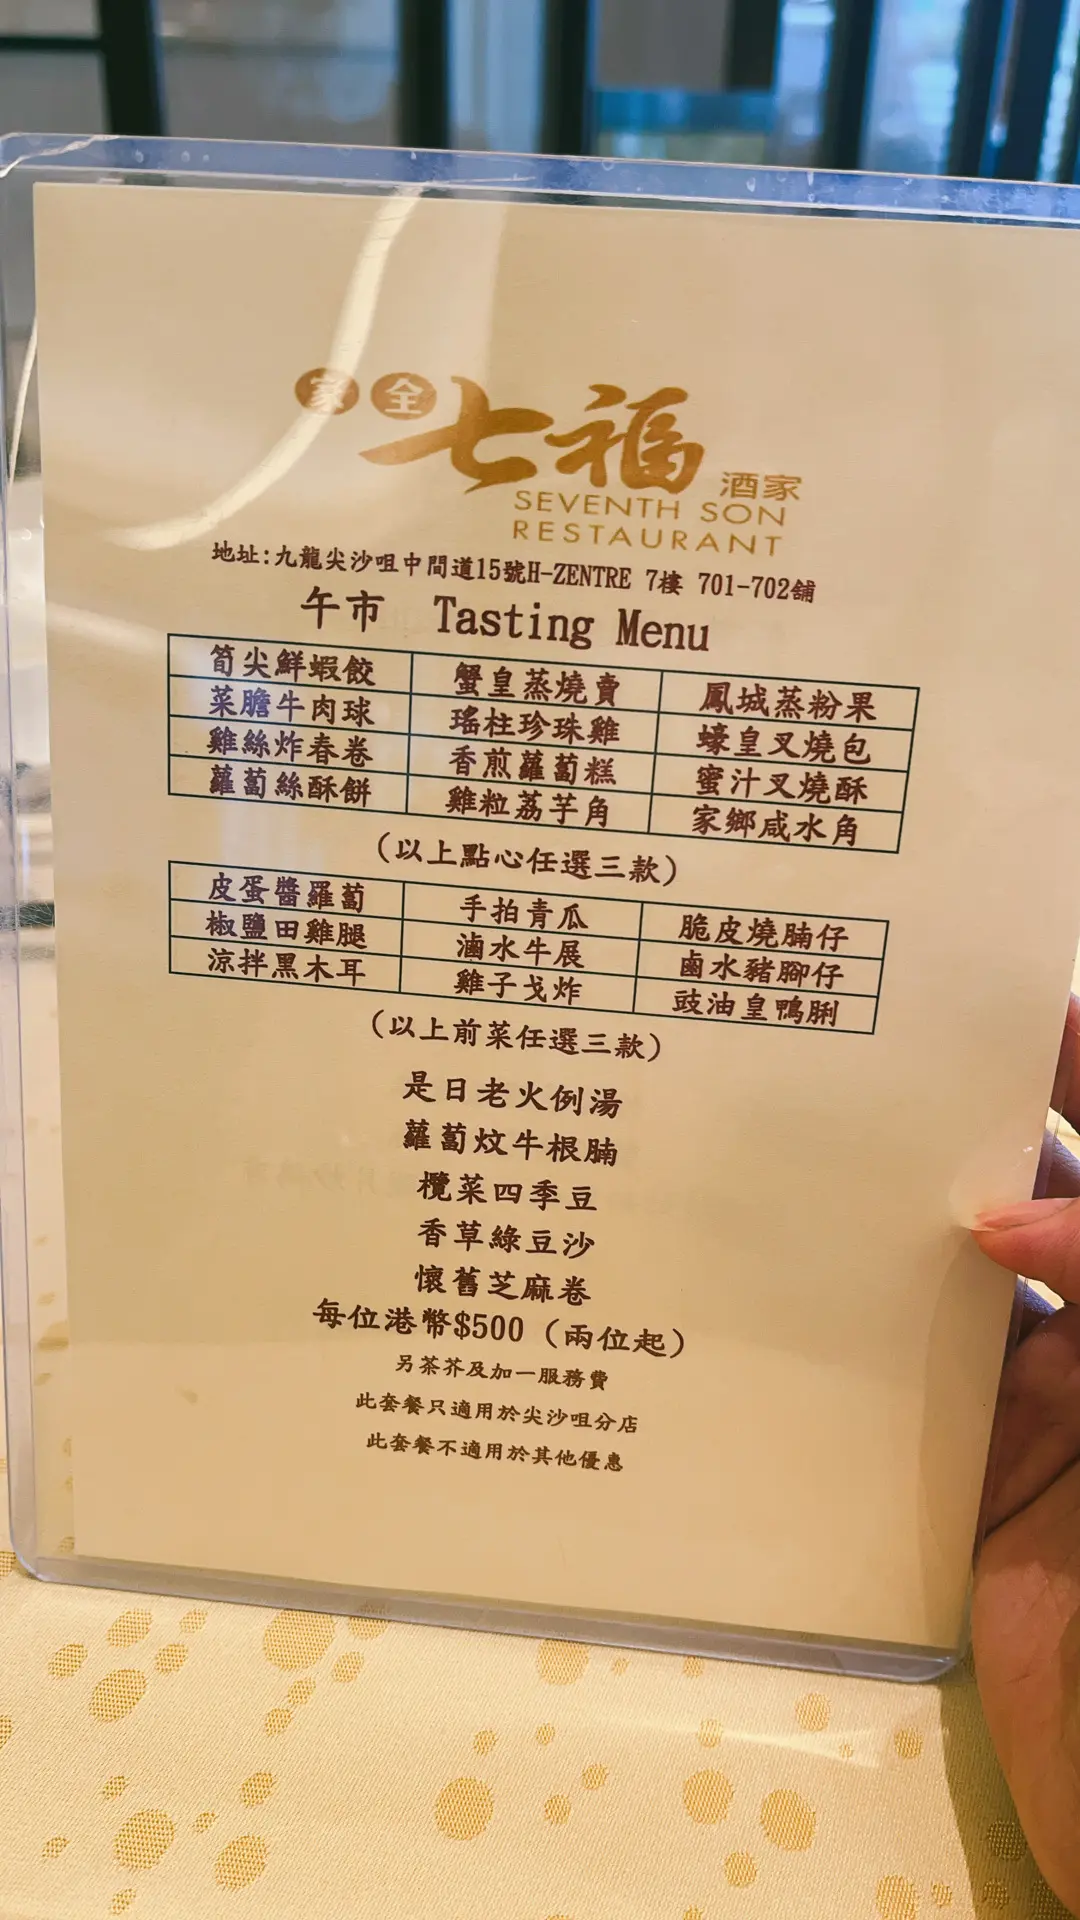 家全七福酒家
SEVENTH SON
RESTAURANT
地址:九龍尖沙咀中間道15號H-ZENTRE 7樓 701-702舖
午市 Tasting Menu
筍尖鮮蝦餃 蟹皇蒸燒賣 鳳城蒸粉果
菜膽牛肉球 瑤柱珍珠雞 蠔皇叉燒包
雞絲炸春卷 香煎蘿蔔糕 蜜汁叉燒酥
蘿蔔絲酥餅 雞粒荔芋角 家鄉咸水角
(以上點心任選三款)
皮蛋醬羅蔔 手拍青瓜 脆皮燒腩仔
椒鹽田雞腿 滷水牛展 鹵水豬腳仔
涼拌黑木耳 雞子戈炸 豉油皇鴨脷
(以上前菜任選三款)
是日老火例湯
蘿蔔炆牛根腩
欖菜四季豆
香草綠豆沙
懷舊芝麻卷
每位港幣$500 (兩位起)
另茶芥及加一服務費
此套餐只適用於尖沙咀分店
此套餐不適用於其他優惠